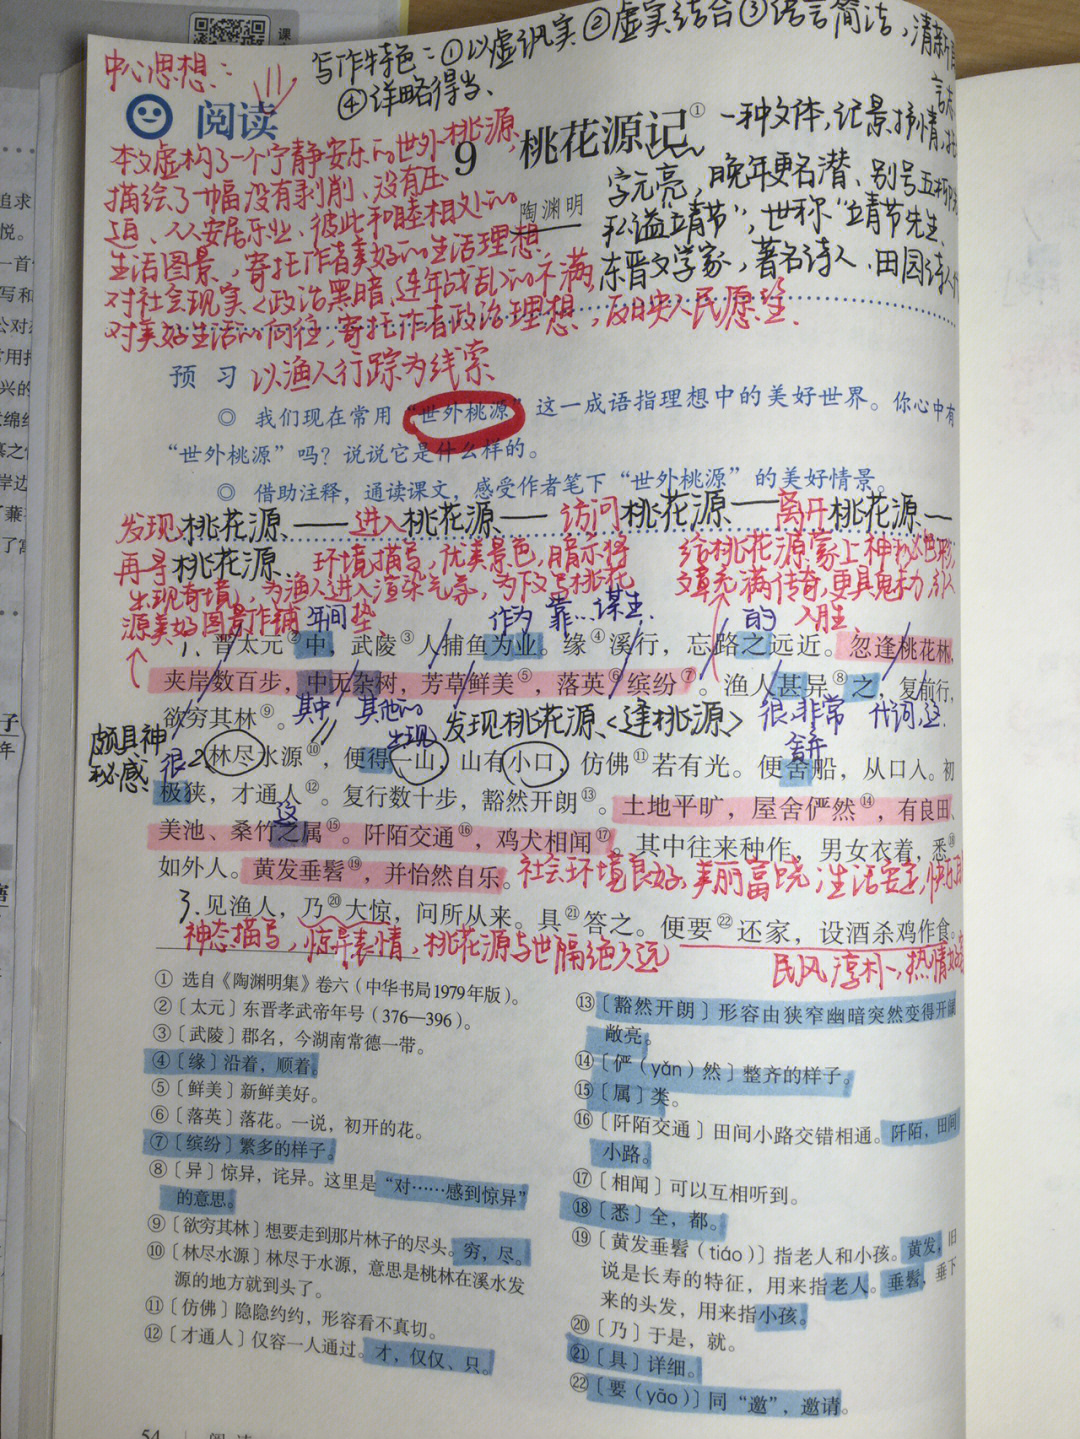 写作特色：①以虚讽实②虚实结合③语言简洁，清新
④详略得当、
中心思想：
阅读
9 桃花源记①
一种文体，记景，抒情，
陶渊明
字元亮，晚年更名潜、别号五柳
私谥“靖节”，世称“靖节先生、
东晋文学家，著名诗人、田园诗人
本文虚构了一个宁静安乐的世外桃源，
描绘了一幅没有剥削、没有压
迫、人人安居乐业、彼此和睦相处的
生活图景，寄托作者美好的生活理想、
对社会现实<政治黑暗、连年战乱的不满，
对美好生活的向往，寄托作者政治理想，反映人民愿望、
预习
以渔人行踪为线索、
◎ 我们现在常用“世外桃源”这一成语指理想中的美好世界。你心中有
“世外桃源”吗？说说它是什么样的。
◎ 借助注释，通读课文，感受作者笔下“世外桃源”的美好情景。
发现桃花源——进入桃花源——访问桃花源——离开桃花源—
再寻桃花源
环境描写，优美景色，暗示将
出现奇境，为渔人进入渲染气氛，为下文写桃花
源美好图景作铺垫
给桃花源蒙上神秘色彩，
文章充满传奇，更具魅力，引人
入胜、
年间
作为 靠…谋生、
的
1. 晋太元②中，武陵③人捕鱼为业。缘④溪行，忘路之远近。忽逢桃花林，
夹岸数百步，中无杂树，芳草鲜美⑤，落英⑥缤纷⑦。渔人甚异⑧之，复前行，
欲穷其林⑨。
其中
其他的
发现桃花源<逢桃源>
很，非常
代词，这、
颇具神
秘感
很
出现
舍弃
2 林尽水源⑩，便得一山，山有小口，仿佛⑪若有光。便舍船，从口入。初
极狭，才通人⑫。复行数十步，豁然开朗⑬。土地平旷，屋舍俨然⑭，有良田、
这
美池、桑竹之属⑮。阡陌交通⑯，鸡犬相闻⑰。其中往来种作，男女衣着，悉⑱
如外人。黄发垂髫⑲，并怡然自乐。
社会环境良好、美丽富饶，生活安定，快乐
3. 见渔人，乃⑳大惊，问所从来。具㉑答之。便要㉒还家，设酒杀鸡作食。
神态描写，惊异表情，桃花源与世隔绝久远
民风淳朴、热情好客
① 选自《陶渊明集》卷六（中华书局1979年版）。
②〔太元〕东晋孝武帝年号（376—396）。
③〔武陵〕郡名，今湖南常德一带。
④〔缘〕沿着，顺着。
⑤〔鲜美〕新鲜美好。
⑥〔落英〕落花。一说，初开的花。
⑦〔缤纷〕繁多的样子。
⑧〔异〕惊异，诧异。这里是“对……感到惊异”
的意思。
⑨〔欲穷其林〕想要走到那片林子的尽头。穷，尽。
⑩〔林尽水源〕林尽于水源，意思是桃林在溪水发
源的地方就到头了。
⑪〔仿佛〕隐隐约约，形容看不真切。
⑫〔才通人〕仅容一人通过。才，仅仅、只。
⑬〔豁然开朗〕形容由狭窄幽暗突然变得开阔
敞亮。
⑭〔俨（yǎn）然〕整齐的样子。
⑮〔属〕类。
⑯〔阡陌交通〕田间小路交错相通。阡陌，田间
小路。
⑰〔相闻〕可以互相听到。
⑱〔悉〕全，都。
⑲〔黄发垂髫（tiáo）〕指老人和小孩。黄发，旧
说是长寿的特征，用来指老人。垂髫，垂下
来的头发，用来指小孩。
⑳〔乃〕于是，就。
㉑〔具〕详细。
㉒〔要（yāo）〕同“邀”，邀请。
54 阅 读